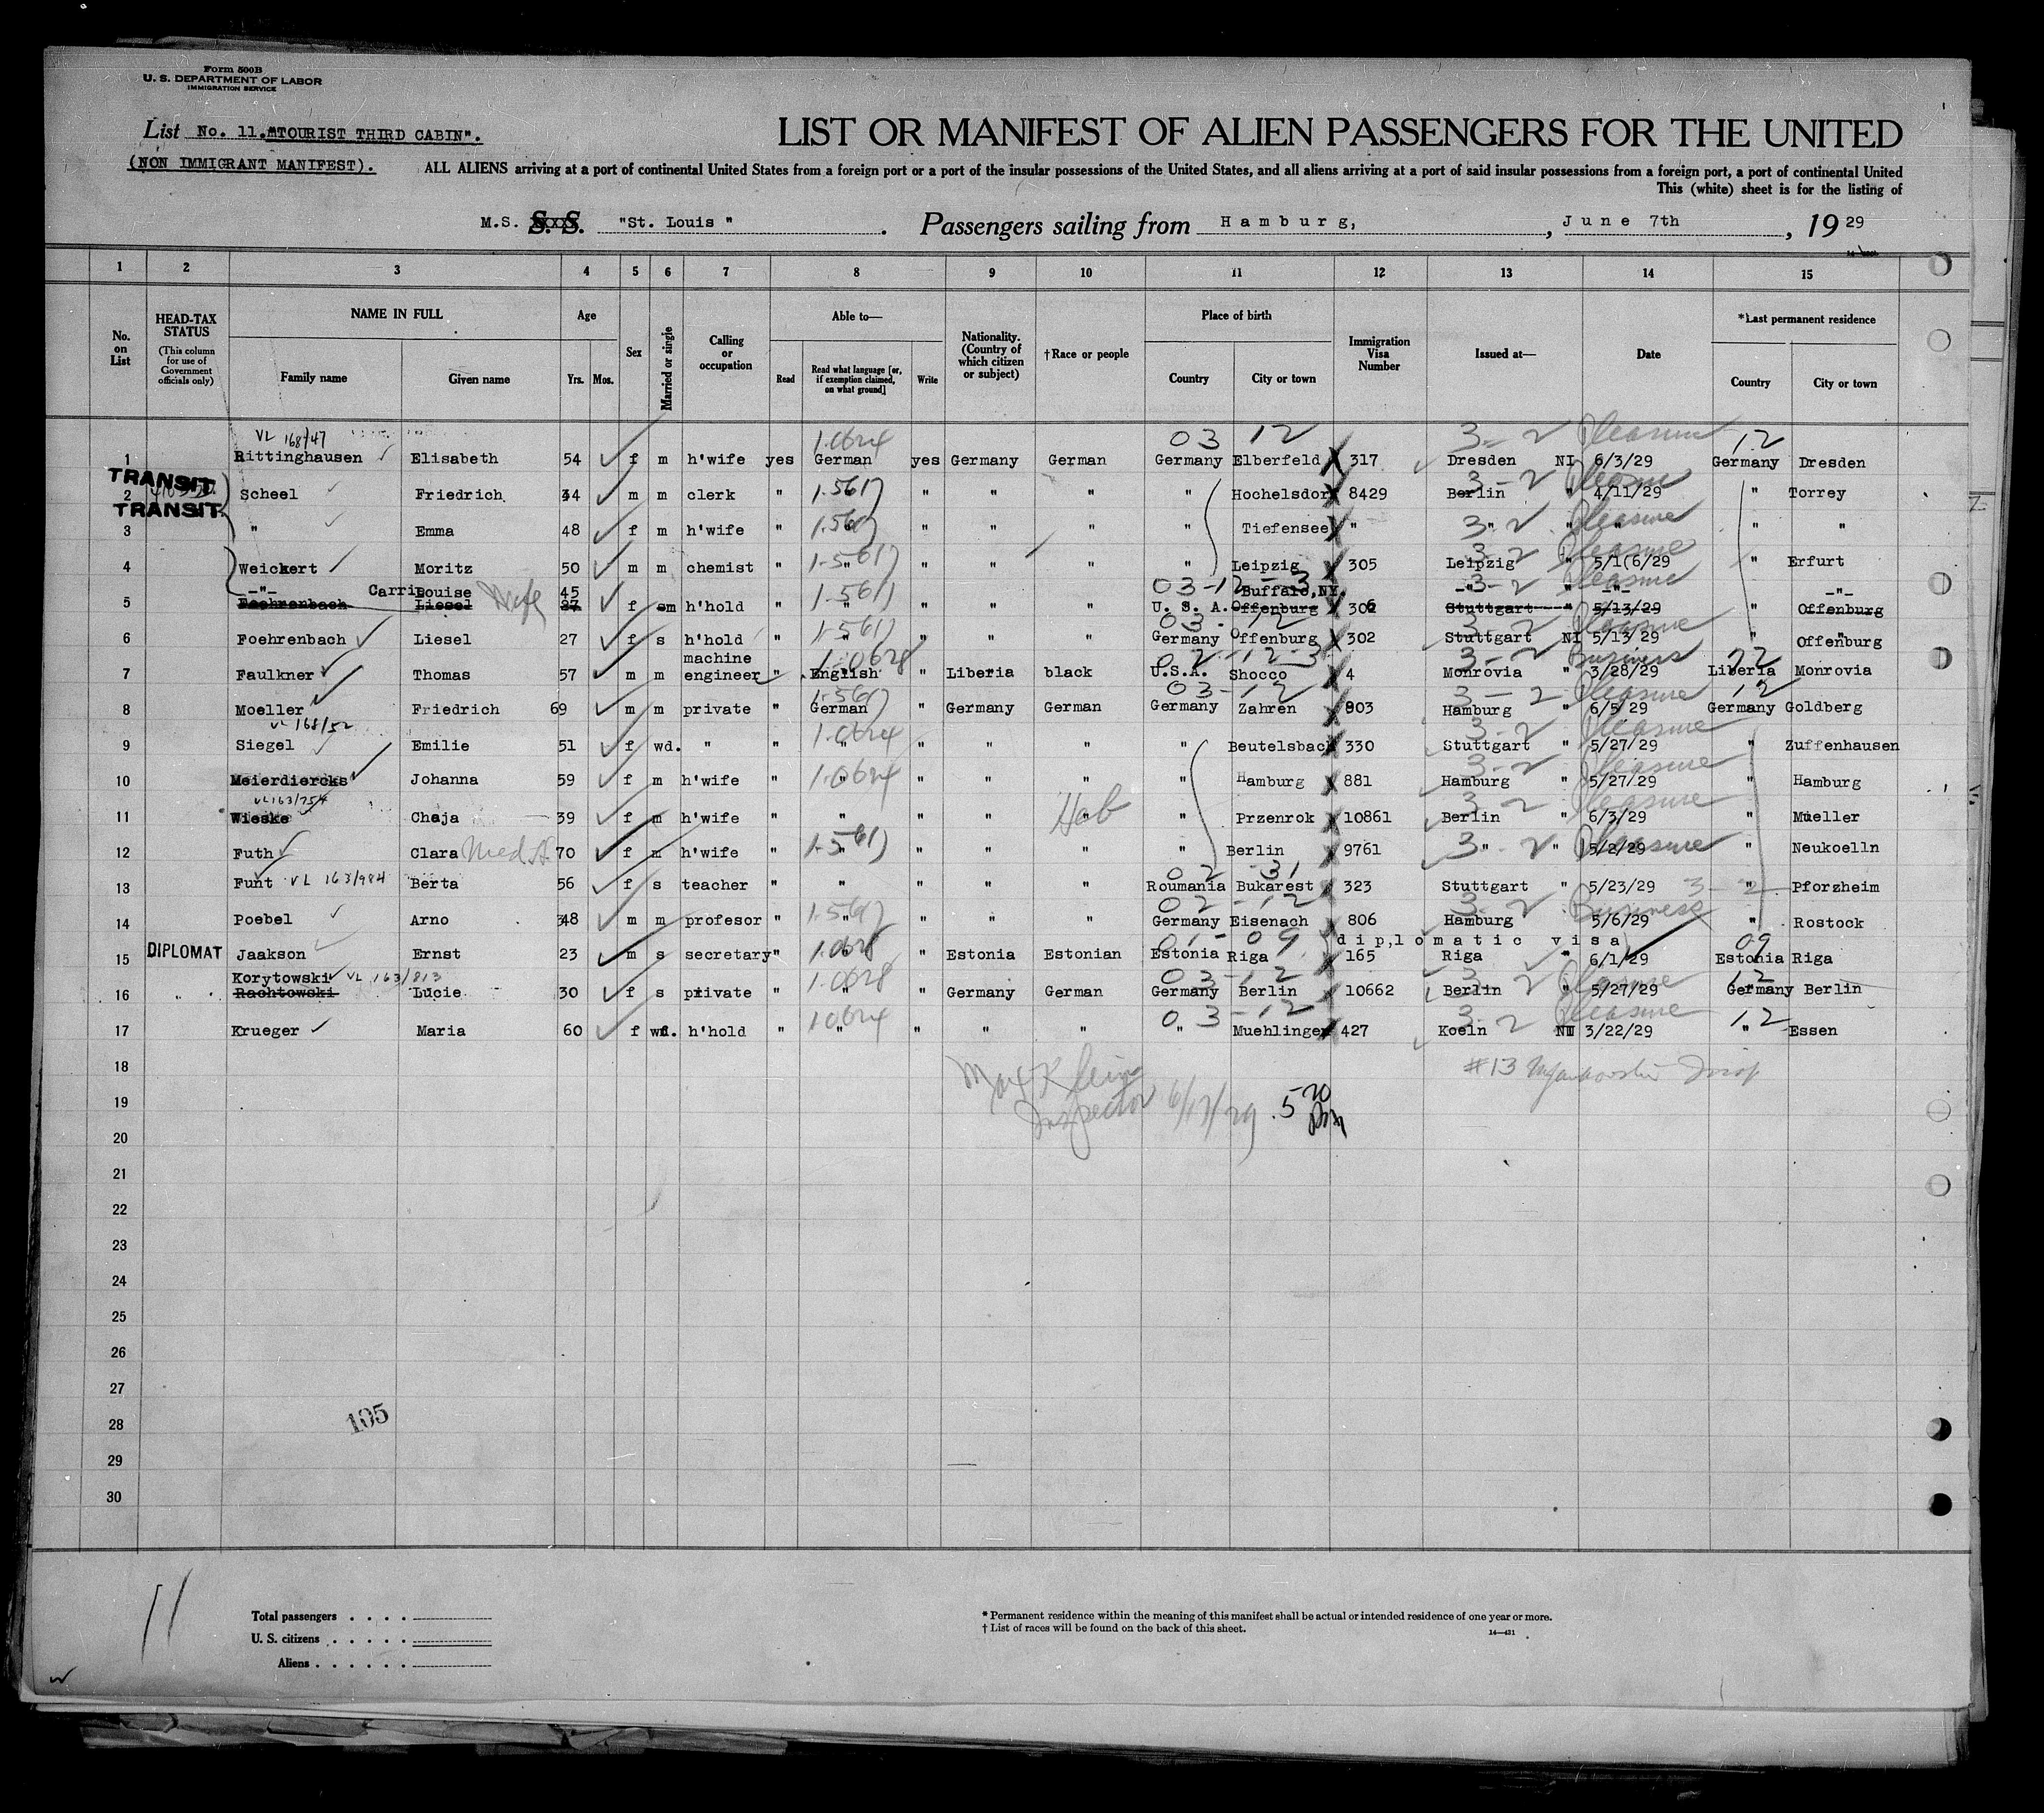 Form 500B
U. S. DEPARTMENT OF LABOR
IMMIGRATION SERVICE
List No. 11. "TOURIST THIRD CABIN".
(NON IMMIGRANT MANIFEST).
LIST OR MANIFEST OF ALIEN PASSENGERS FOR THE UNITED
ALL ALIENS arriving at a port of continental United States from a foreign port or a port of the insular possessions of the United States, and all aliens arriving at a port of said insular possessions from a foreign port, a port of continental United
This (white) sheet is for the listing of
M.S. S. S. "St. Louis" . Passengers sailing from Hamburg, , June 7th , 19 29
1 2 3 4 5 6 7 8 9 10 11 12 13 14 15
No. on List
HEAD-TAX STATUS (This column for use of Government officials only)
NAME IN FULL Family name Given name
Age Yrs. Mos.
Sex
Married or single
Calling or occupation
Able to— Read Read what language [or, if exemption claimed, on what ground] Write
Nationality. (Country of which citizen or subject)
†Race or people
Place of birth Country City or town
Immigration Visa Number
Issued at—
Date
*Last permanent residence Country City or town
VL 168/47 1.0624 03 12 3-2 Pleasure 12
1 Rittinghausen Elisabeth 54 f m h'wife yes German yes Germany German Germany Elberfeld X 317 Dresden NI 6/3/29 Germany Dresden
TRANSIT
2 Scheel Friedrich 34 m m clerk " 1-5617 " " " " Hochelsdorf X 8429 Berlin 3-2 " 4/11/29 Pleasure " Torrey
TRANSIT
3 " Emma 48 f m h'wife " 1.5617 " " " " Tiefensee X " " 3-2 " " Pleasure " "
4 Weickert Moritz 50 m m chemist " 1-5617 " " " " Leipzig X 305 Leipzig 3-2 " 5/16/29 Pleasure " Erfurt
-"- Carrie Louise Wife 45 03-12-3 Buffalo, NY. -"- 3-2 -"- Pleasure -"-
5 Foehrenbach Liesel 27 f m h'hold " 1-5617 " " " U. S. A. Offenburg X 306 Stuttgart 5/13/29 " Offenburg
6 Foehrenbach Liesel 27 f s h'hold " 1-5617 " " " 03-12 Germany Offenburg X 302 Stuttgart NI 5/13/29 Pleasure " Offenburg
7 Faulkner Thomas 57 m m machine engineer " 1-0628 English " Liberia black U.S.A. Shocco X 4 Monrovia 3-2 " 3/28/29 Business 72 Liberia Monrovia
8 Moeller Friedrich 69 m m private " 1-5617 German " Germany German 03-12 Germany Zahren X 903 Hamburg 3-2 " 6/5/29 Pleasure 12 Germany Goldberg
VL 168/52
9 Siegel Emilie 51 f wd. " " 1.0624 " " " " Beutelsbach X 330 Stuttgart 3-2 " 5/27/29 Pleasure " Zuffenhausen
10 Meierdiercks Johanna 59 f m h'wife " 1.0624 " " " " Hamburg X 881 Hamburg 3-2 " 5/27/29 Pleasure " Hamburg
VL 163/754
11 Wieske Chaja 39 f m h'wife " " " " " Heb " Przenrok X 10861 Berlin 3-2 " 6/3/29 Pleasure " Mueller
12 Futh Clara 70 f m h'wife " 1-5617 " " " " Berlin X 9761 " 3-2 " 5/2/29 Pleasure " Neukoelln
13 Funt VL 163/984 Berta 56 f s teacher " " " " " 02 31 Roumania Bukarest X 323 Stuttgart " 5/23/29 3-2 " Pforzheim
14 Poebel Arno 48 m m profesor " 1-5617 " " " 02-12 Germany Eisenach X 806 Hamburg 3-2 " 5/6/29 Business " Rostock
15 DIPLOMAT Jaakson Ernst 23 m s secretary " 1.0628 " Estonia Estonian 01-09 Estonia Riga X 165 diplomatic visa Riga " 6/1/29 09 Estonia Riga
Korytowski VL 163/813
16 Rachtowski Lucie 30 f s private " 1.0628 " Germany German 03-12 Germany Berlin X 10662 Berlin 3-2 " 5/27/29 Pleasure 12 Germany Berlin
17 Krueger Maria 60 f wd. h'hold " 1.0624 " " " 03-12 " Muehlingen X 427 Koeln 3-2 NI 3/22/29 Pleasure 12 " Essen
18 #13
19 Max Klein Inspector 6/17/29 5 20
20
21
22
23
24
25
26
27
28 105
29
30
11
Total passengers . . . .
U. S. citizens . . . . .
Aliens . . . . . .
* Permanent residence within the meaning of this manifest shall be actual or intended residence of one year or more.
† List of races will be found on the back of this sheet.
14—431